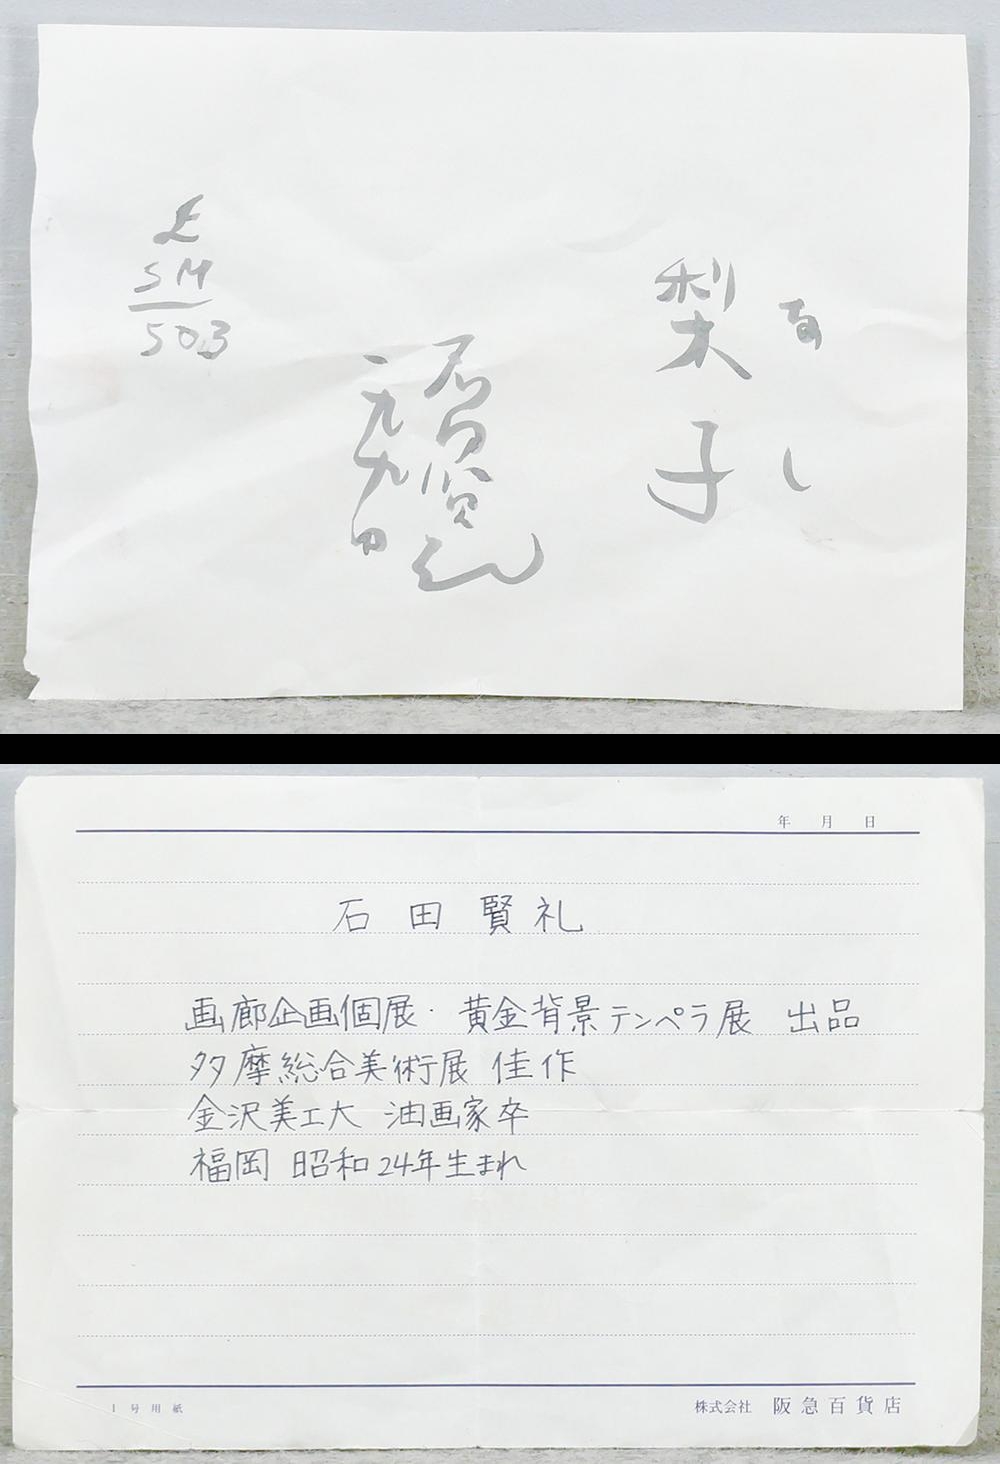 なし
梨子
石田賢礼
SM
503
年 月 日
石田賢礼
画廊企画個展・黄金背景テンペラ展 出品
多摩総合美術展 佳作
金沢美工大 油画家卒
福岡 昭和24年生まれ
1号用紙
株式会社 阪急百貨店